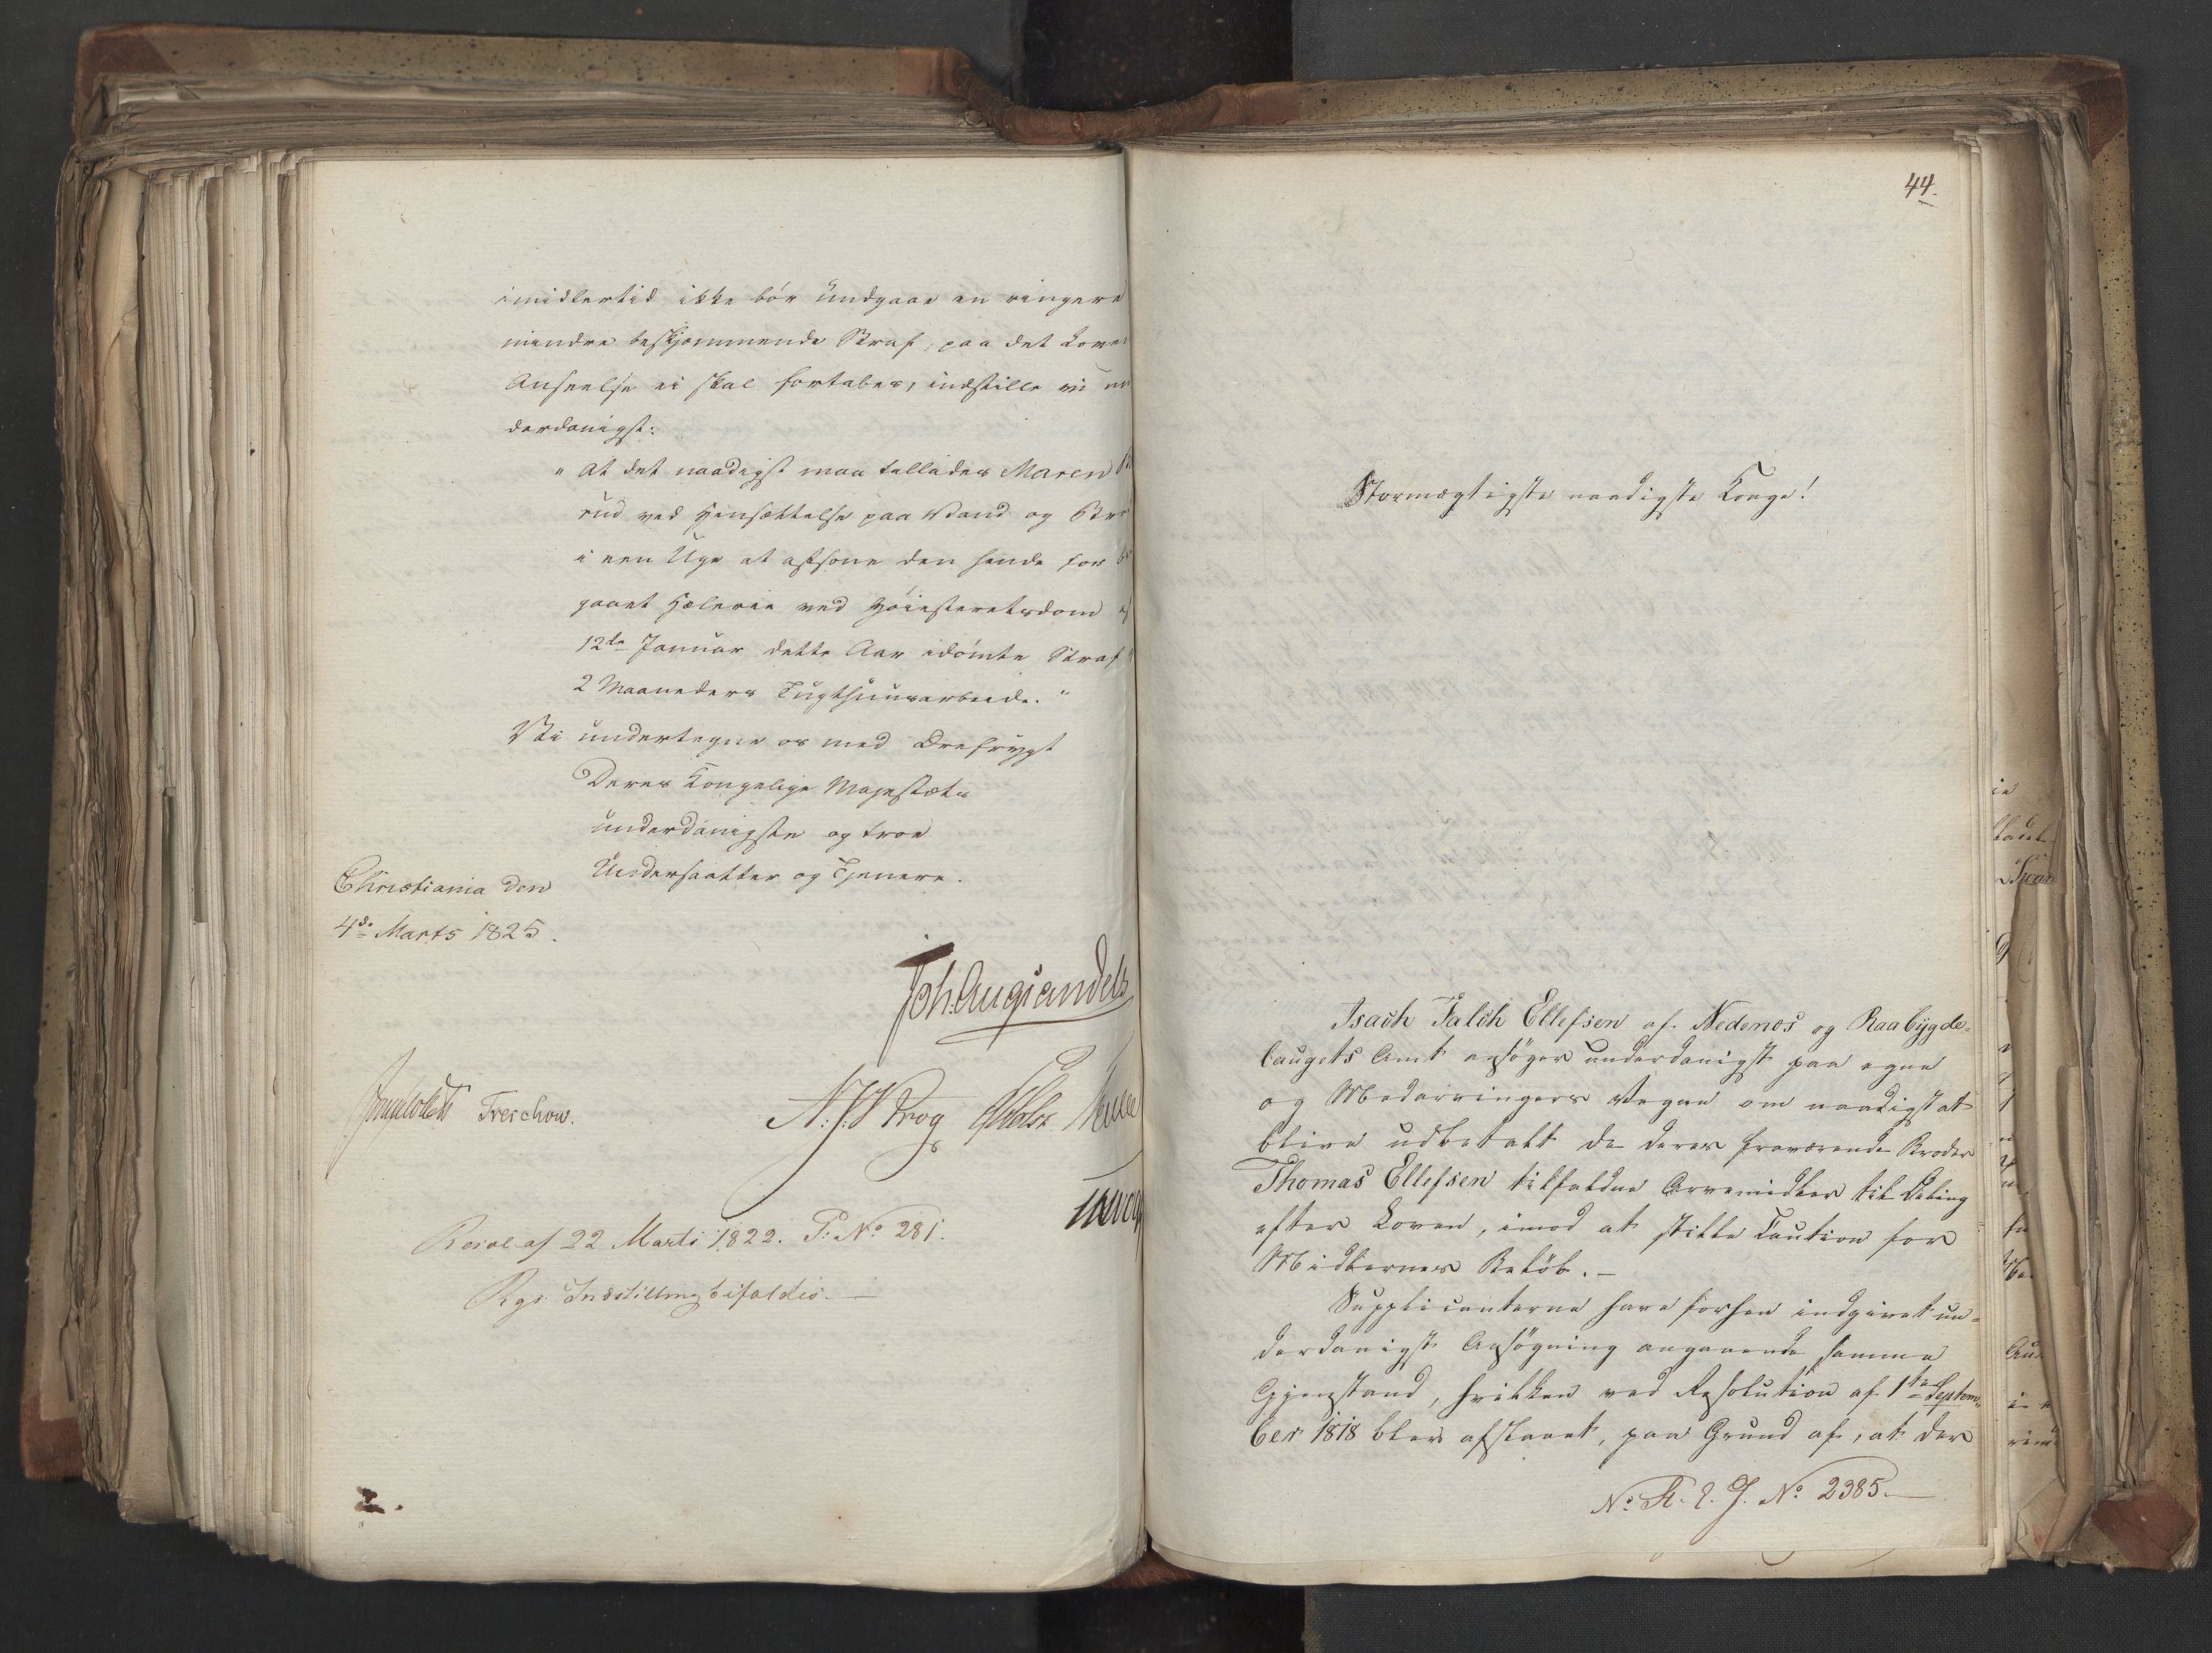 imidlertid ikke bør undgaae en ringere
mindre beskjæmmende Straf, paa det Lovens
Anseelse ei skal fortabes, indstille vi un
derdanigst:
" at det naadigst maa tillades Maren
rud ved Hensættelse paa Vand og Brø
i een Uge at afsone den hende for be
gaaet Hælerie ved Høiesteretsdom af
12te Januar dette Aar idømte Straf
2 Maaneders Tugthuusarbeide."
Vi undertegne os med Ærefrygt
Deres Kongelige Majestæts
underdanigste og troe
Undersaatter og Tjenere.
Christiania den
4de Marts 1825.
Joh. Aug. Sandels
Sommerhielm Treschow. N. J. V. Krog
Resol. af 22 Marts 1822. P: No 281.
Rgs. Indstilling bifaldes.
44.
Stormægtigste naadigste Konge!
Isach Falch Ellefsen af Nedenæs og Raabygde-
laugets Amt ansøger underdanigst paa egne
og Medarvingers Vegne om naadigst at
blive udbetalt de deres fraværende Broder
Thomas Ellefsen tilfaldne Arvemidler til Deling
efter Loven, imod at stille Caution for
Midlernes Beløb. -
Supplicanterne have forhen indgivet un-
derdanigst Ansøgning angaaende samme
Gjenstand, hvilken ved Resolution af 1ste Septem-
ber 1818 blev afslaaet, paa Grund af, at der
No. R. E. J. No 2385.